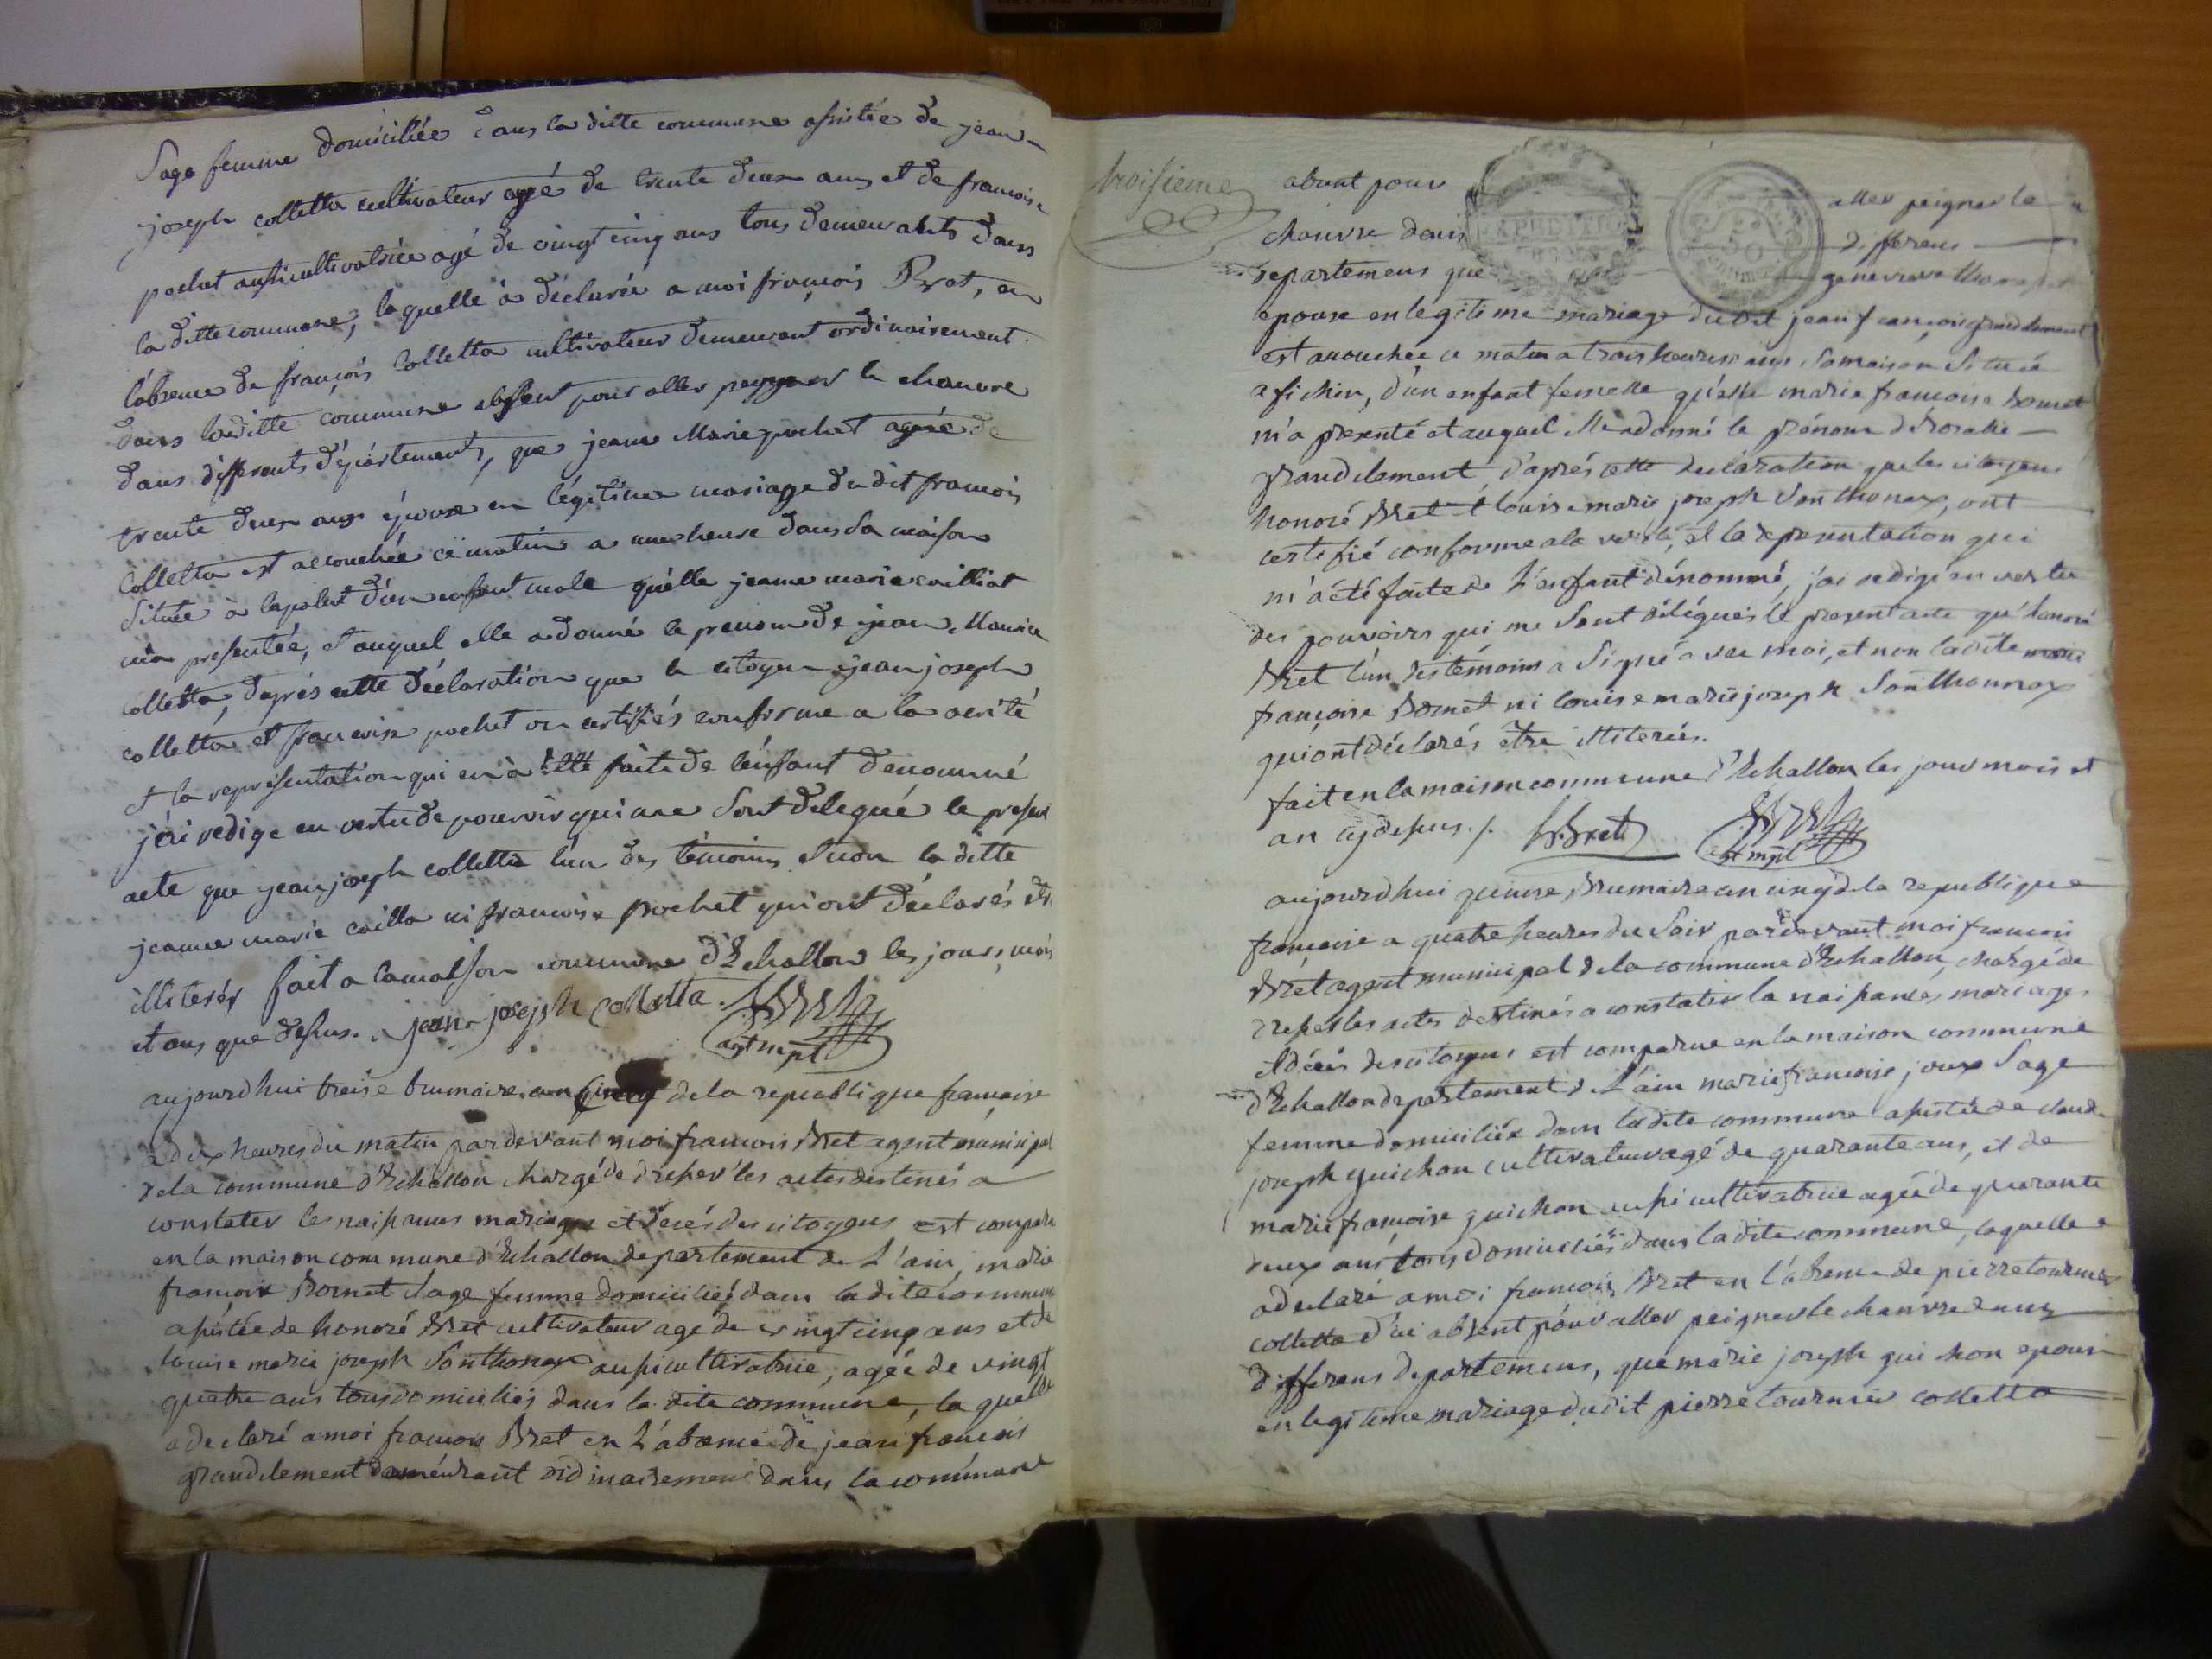 Sage femme domiciliée dans la ditte commune assistée de jean
joseph colletta cultivateur agé de trente deux ans et de francoise
pochet aussi cultivatrice agé de vingt cinq ans tous demeurants dans
la ditte commune, laquelle à déclarée a moi françois Bret, en
l'absence de françois Colletta cultivateur demeurant ordinairement
dans laditte commune absent pour aller peygner le chanvre
dans differents départements, que jeanne Marie pochet agée de
trente deux ans épouse en légitime mariage du dit francois
Colletta est accouchée ce matin a une heure dans sa maison
Située à d'un enfant male qu'elle jeanne marie
m'a presentée, et auquel elle a donné le prenom de jean Maurice
colletta, d'après cette déclaration que le citoyen jean joseph
colletta et francoise pochet on certifiés conforme a la verité
et la représentation qui m'en à été faite de l'enfant denommé
j'ai redigé en vertu de pouvoir qui me Sont delegué le present
acte que jean joseph colletta l'un des témoins Non la ditte
jeanne marie cailla ni francoise pochet qui ont déclarés etre
illiterés fait a la maison commune d'Echallon les jours, mois
et ans que dessus. jean joseph Colletta Bret
agt mpl
aujourdhui treise brumaire an cinq de la republique francaise
a dix heures du matin par devant moi francois Bret agent municipal
de la commune d'Echallon chargé de dresser les actes destinés a
constater les naissances mariages et décés des citoyens est comparu
en la maison commune d'Echallon departement de L'ain, marie
francoise Bornet Sage femme domiciliée dans la dite commune
assistée de honoré Bret cultivateur agé de vingt cinq ans et de
louise marie joseph Sonthonax aussi cultivatrice, agée de vingt
quatre ans tous domiciliés dans la dite commune, la quelle
a declaré a moi francois Bret en L'absence de jean francois
grandclement demeurant ordinairement dans la commune
troisieme
absent pour aller peigner le
chanvre dans differens
EXPEDITION
50
departemens que genevieve
epouse en legitime mariage du dit jean francois grandclement
est acouchée ce matin a trois heures dans Sa maison Située
a fichin, d'un enfant femelle qu'elle marie francoise bornet
m'a presenté et auquel elle a donné le prénom de Rosalie
grandclement d'aprés cette declaration que les citoyens
honoré Bret et louise marie joseph Sonthonax, ont
certifié conforme a la verité, et la representation qui
m'a été faite de L'enfant dénommé, j'ai redigé en vertu
des pouvoirs qui me Sont délégués le present acte qu'honoré
Bret l'un des témoins a Signé avec moi, et non la dite marie
françoise Bornet ni louise marie joseph Sonthonnax
qui ont déclarés être illiterés.
fait en la maison commune d'Echallon les jour mois et
an cy dessus ./. h. Bret Bret
agt mpl
aujourdhui quinse Brumaire an cinq de la republique
française a quatre heures du Soir par devant moi francois
Bret agent municipal de la commune d'Echallon, chargé de
dresser les actes destinés a constater la naissances, mariages
et décés des citoyens est comparue en la maison commune
d'Echallon departement de L'ain marie francoise joux Sage
femme domiciliée dans la dite commune assistée de claude
joseph guichon cultivateur agé de quarante ans, et de
marie francoise guichon aussi cultivatrice agée de quarante
deux ans tous domiciliés dans la dite commune, laquelle
a declaré a moi francois Bret en l'absence de pierre tournier
colletta d'ici absent pour aller peigner le chanvre dans
differens departemens, que marie joseph guichon epouse
en legitime mariage du dit pierre tournier colletta